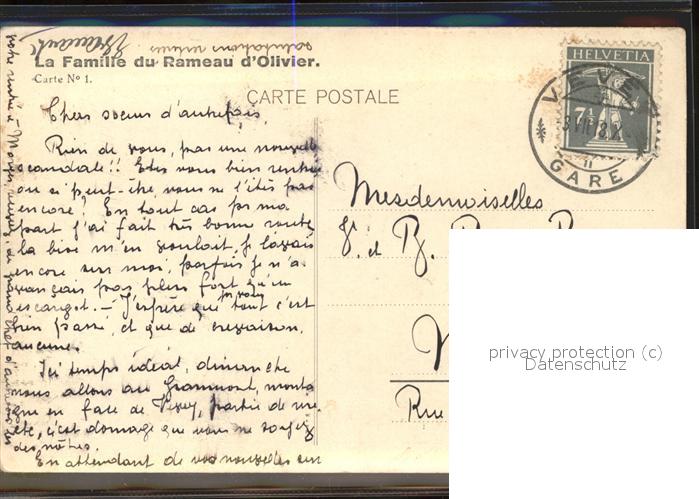 La Famille du Rameau d'Olivier.
Carte Nº 1.
CARTE POSTALE
HELVETIA
7½
VEVEY
GARE
Chers soeurs d'autrefois,
Rien de vous, pas une nouvelle
scandale!! Etes vous bien rentrées
ou si peut-être vous ne l'êtes pas
encore! En tout cas pr ma
part j'ai fait très bonne route
la bise m'en voulait, je l'avais
encore sur moi, parfois je n'a-
vançais pas plus fort qu'un
escargot. — J'espère que pr vous tout s'est
bien passé, et que de crevaison,
aucune.
Ici temps idéal, dimanche
nous allons au Grammont, monta-
gne en face de Vevey, partie de
c'est domage que vous ne soyez
des nôtres.
En attendant de vos nouvelles sur
votre rentrée à
salutations
Mesdemoiselles
et B.
Rue
privacy protection (c)
Datenschutz